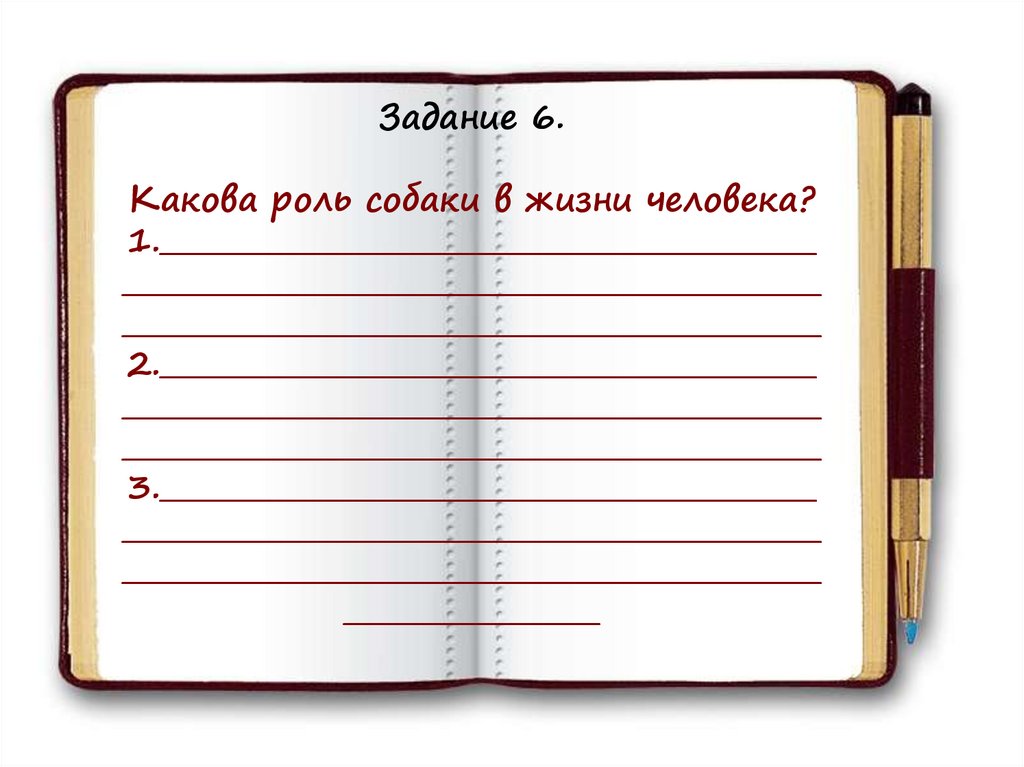 Задание 6.
Какова роль собаки в жизни человека?
1.________________________________
__________________________________
__________________________________
2.________________________________
__________________________________
__________________________________
3.________________________________
__________________________________
__________________________________
____________